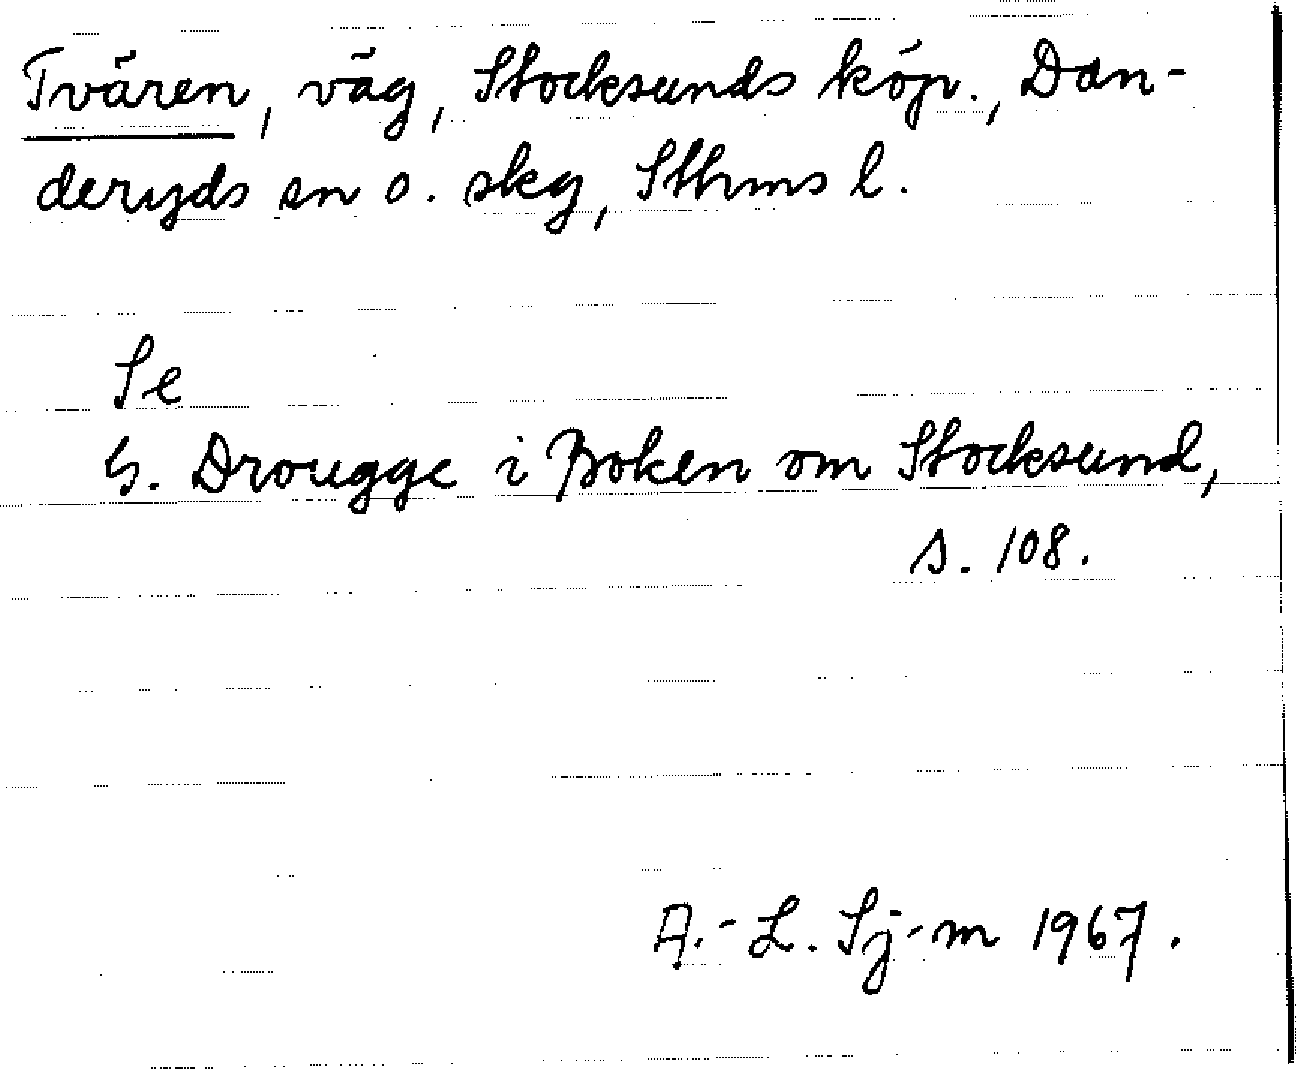 Tvären, väg, Stocksunds köp., Dan-
deryds sn o. skg, Sthms l.
Se
G. Drougge i Boken om Stocksund,
s. 108.
A.-L. Sj-m 1967.